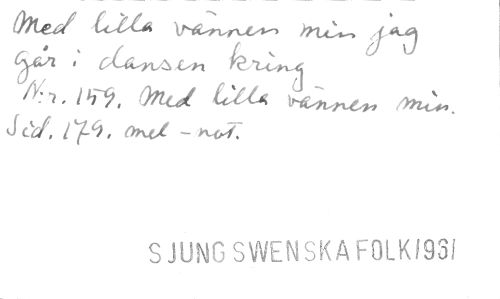 Med lilla vännen min jag
går i dansen kring
N:r. 159. Med lilla vännen min.
Sid. 179. mel-not.
SJUNG SWENSKA FOLK/1961